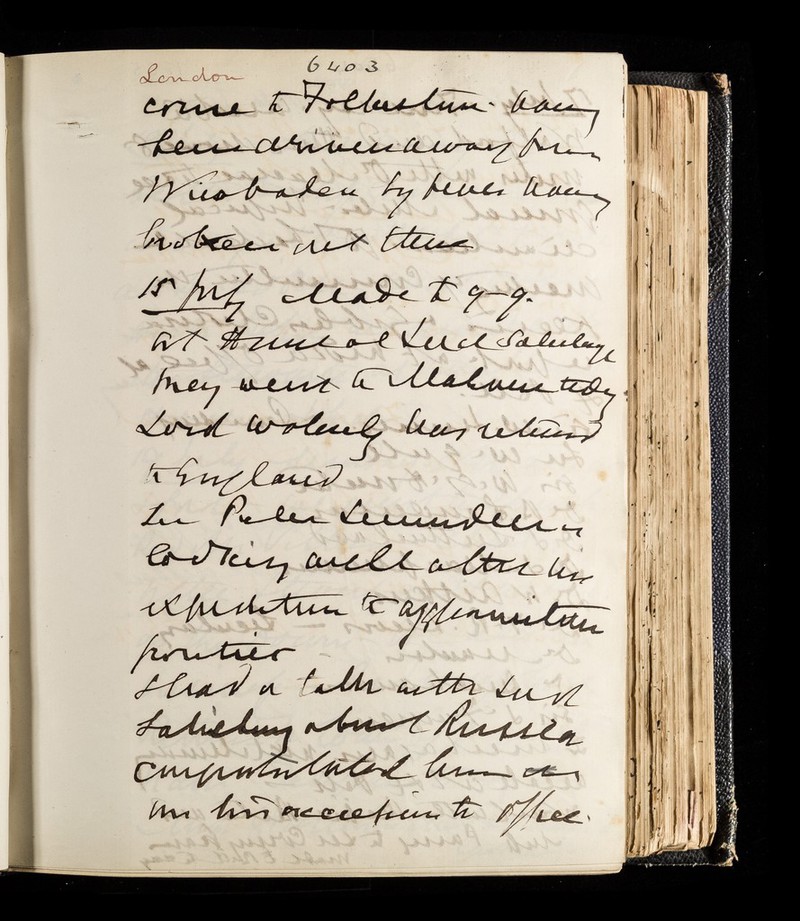 London 6403
come to Folkestone. having
been driven away from
Wiesbaden by fever having
broken out there
15 July Made to g-g.
at House of Lord Salisbury
they went to Malvern tody.
Lord Wolsely has returnd
to England
Sir Peter Lumsden is
looking well after his
expedition to Afghanistan
frontier
I had a talk with Lord
Salisbury about Russia
congratulated him
on his accession to office.